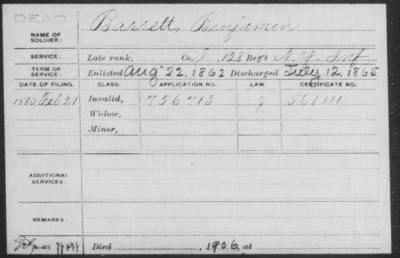 DEAD
NAME OF SOLDIER: Barrett, Benjamin
SERVICE: Late rank, Co. I, 128 Reg't N.Y. Inf
TERM OF SERVICE: Enlisted Aug 22, 1862 Discharged July 12, 1865
DATE OF FILING. CLASS. APPLICATION NO. LAW. CERTIFICATE NO.
Feb 21 Invalid, 756713 561111
Widow,
Minor,
ADDITIONAL SERVICES:
REMARKS:
Died, 1906, at